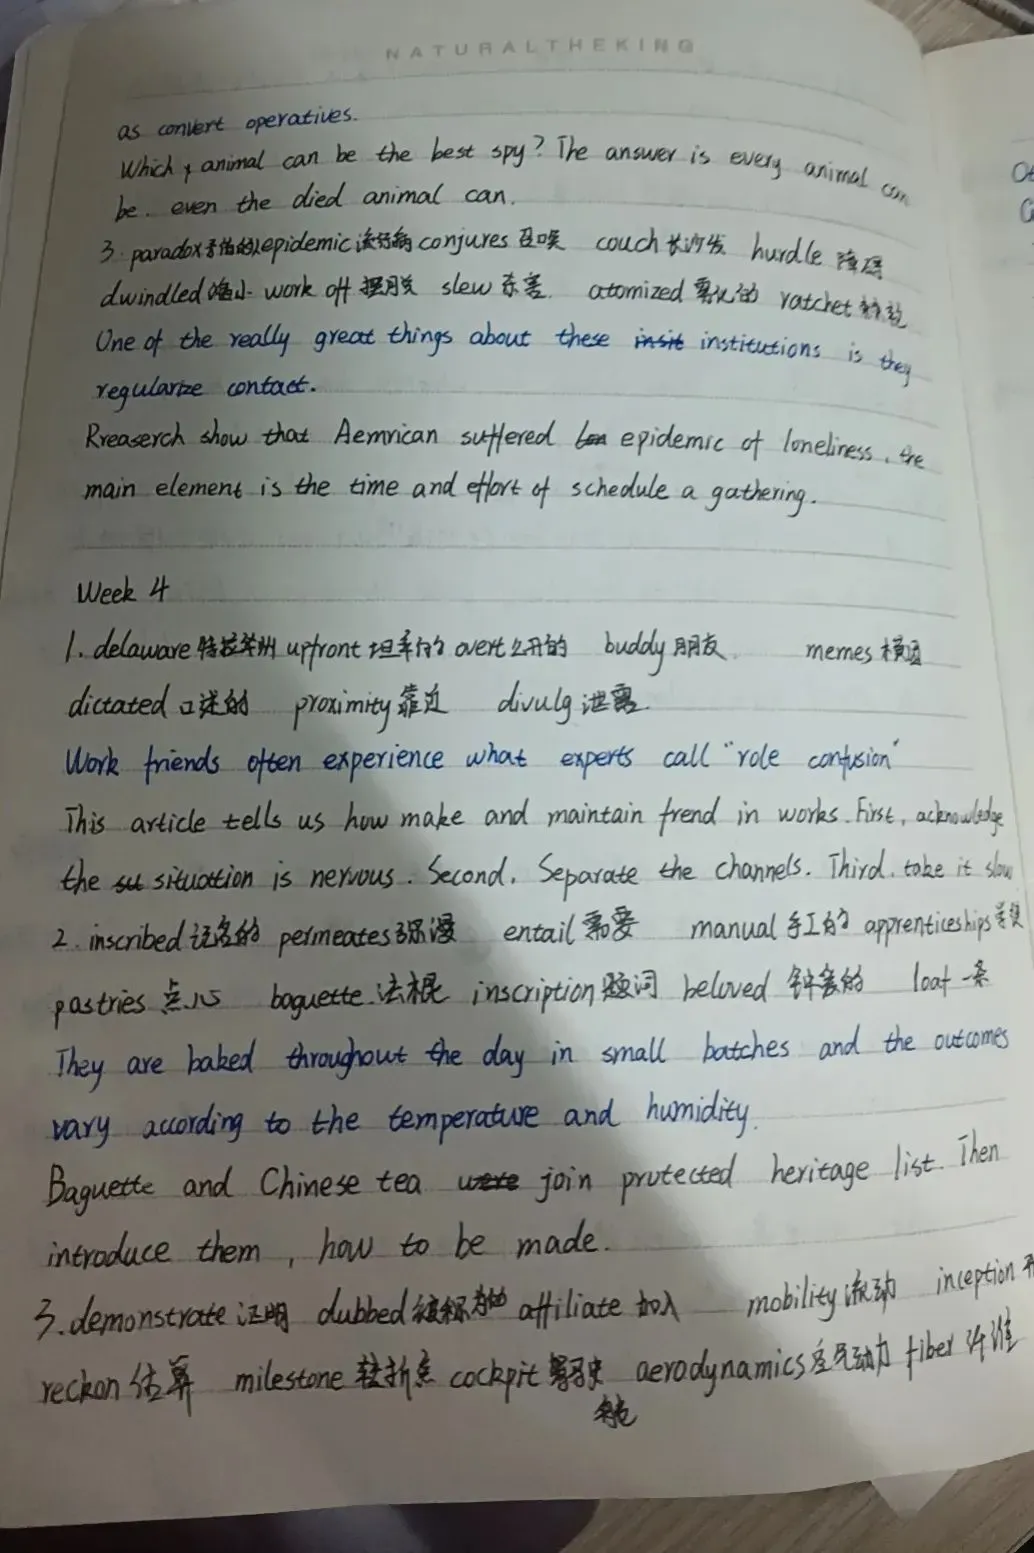 NATURALTHEKING
as convert operatives.
Which animal can be the best spy? The answer is every animal can
be. even the died animal can.
3. paradox矛盾的 epidemic流行病 conjures召唤 couch长沙发 hurdle障碍
dwindled缩小 work off摆脱 slew杀害 atomized雾化的 ratchet
One of the really great things about these institutions is they
regularize contact.
Rreaserch show that Aemrican suffered epidemic of loneliness, the
main element is the time and effort of schedule a gathering.
Week 4
1. delaware特拉华州 upfront坦率的 overt公开的 buddy朋友 memes模因
dictated口述的 proximity靠近 divulg泄露
Work friends often experience what experts call "role confusion"
This article tells us how make and maintain frend in works. First, acknowledge
the situation is nervous. Second, Separate the channels. Third, take it slow
2. inscribed记名的 permeates弥漫 entail需要 manual手工的 apprenticeships
pastries点心 baguette法棍 inscription题词 beloved钟爱的 loaf一条
They are baked throughout the day in small batches and the outcomes
vary according to the temperature and humidity.
Baguette and Chinese tea join protected heritage list. Then
introduce them, how to be made.
3. demonstrate证明 dubbed被称为 affiliate加入 mobility流动 inception开
reckon估算 milestone转折点 cockpit驾驶 aerodynamics空气动力 fiber纤维
舱